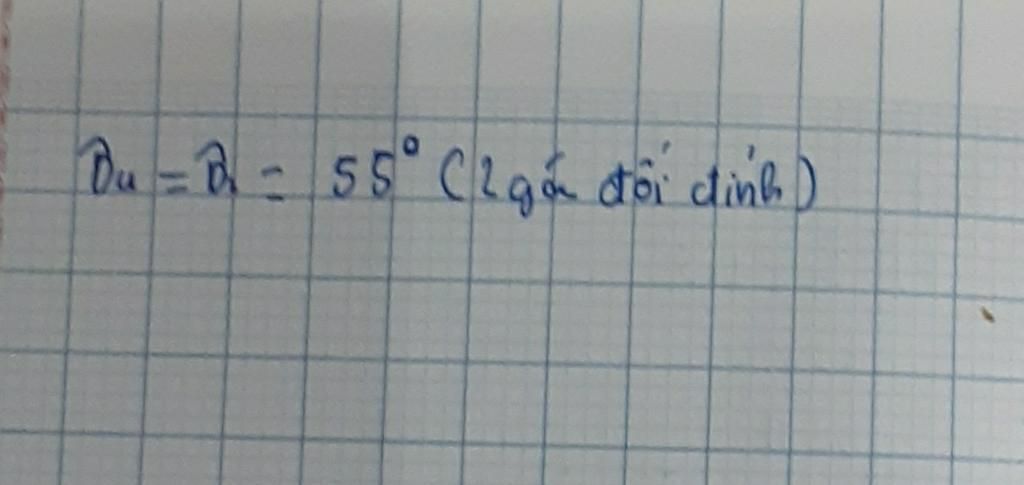 D̂₄ = D̂₁ = 55° (2 góc đối đỉnh)